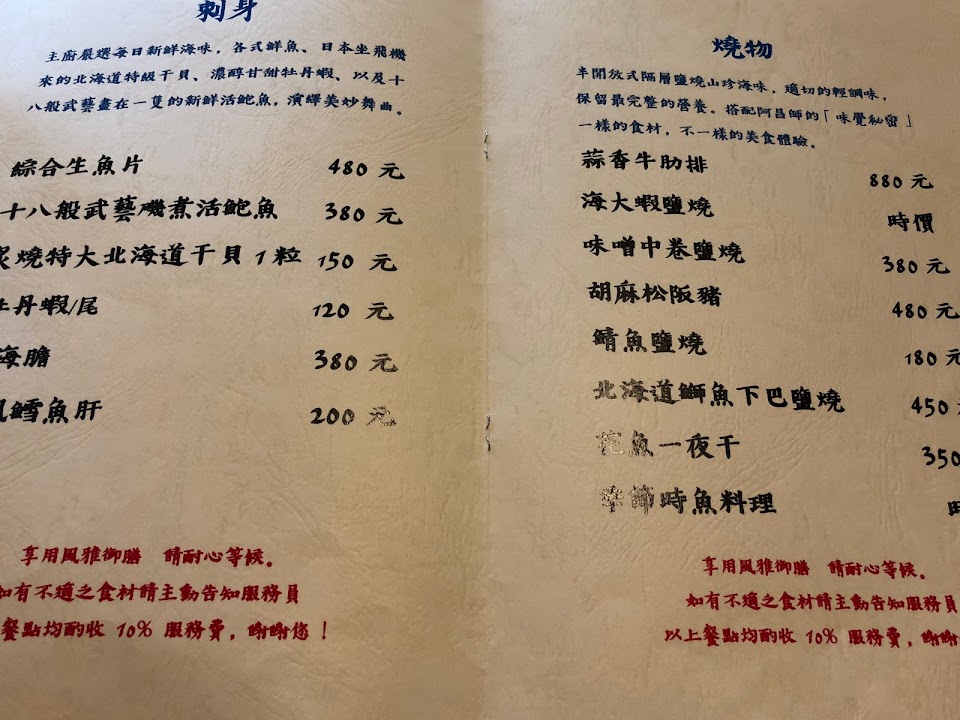 刺身
主廚嚴選每日新鮮海味，各式鮮魚、日本坐飛機
來的北海道特級干貝、濃醇甘甜牡丹蝦、以及十
八般武藝盡在一隻的新鮮活鮑魚，演繹美妙舞曲。
綜合生魚片 480 元
十八般武藝磯煮活鮑魚 380 元
炙燒特大北海道干貝 1 粒 150 元
牡丹蝦/尾 120 元
海膽 380 元
鱈魚肝 200 元
享用風雅御膳 請耐心等候。
如有不適之食材請主動告知服務員
餐點均酌收 10% 服務費，謝謝您！
燒物
半開放式隔層鹽燒山珍海味，適切的輕調味，
保留最完整的營養。搭配阿昌師的「味覺秘密」
一樣的食材，不一樣的美食體驗。
蒜香牛肋排 880 元
海大蝦鹽燒 時價
味噌中卷鹽燒 380 元
胡麻松阪豬 480 元
鯖魚鹽燒 180 元
北海道鰤魚下巴鹽燒 450
魚一夜干 350
季節時魚料理
享用風雅御膳 請耐心等候。
如有不適之食材請主動告知服務員
以上餐點均酌收 10% 服務費，謝謝